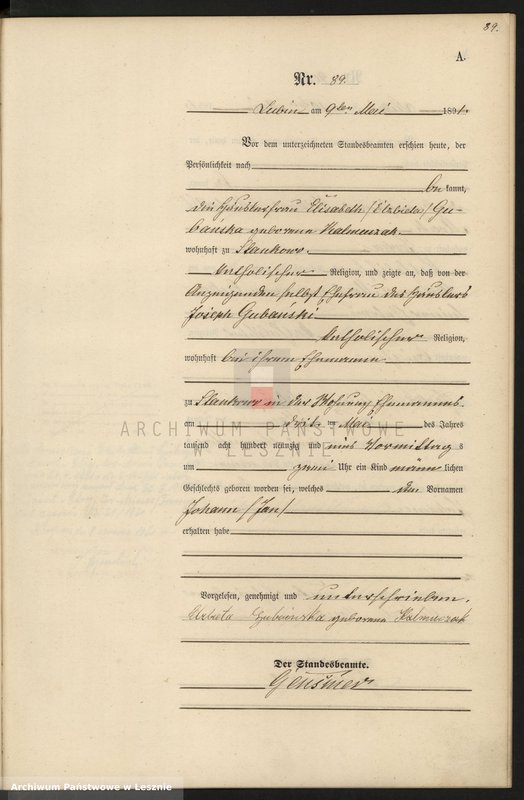 89.
A.
Nr. 89.
Lubin am 9ten Mai 1891.
Vor dem unterzeichneten Standesbeamten erschien heute, der
Persönlichkeit nach
be kannt,
die Häuslerfrau Elisabeth /Elzbieta/ Gu-
bańska geborene Kalmuczak.
wohnhaft zu Stankowo.
katholischer Religion, und zeigte an, daß von der
Anzeigenden selbst Ehefrau des Häuslers
Joseph Gubański
katholischer Religion,
wohnhaft bei ihrem Ehemanne
zu Stankowo in der Wohnung Ehemannes
am Mai des Jahres
tausend acht hundert neunzig und eins Vormittag s
um zwei Uhr ein Kind männ lichen
Geschlechts geboren worden sei, welches den Vornamen
Johann /Jan/
erhalten habe
Vorgelesen, genehmigt und unterschrieben.
Elzbieta Gubainska geborene Kalmuczak
Der Standesbeamte.
ARCHIWUM PAŃSTWOWE
W LESZNIE
Archiwum Państwowe w Lesznie